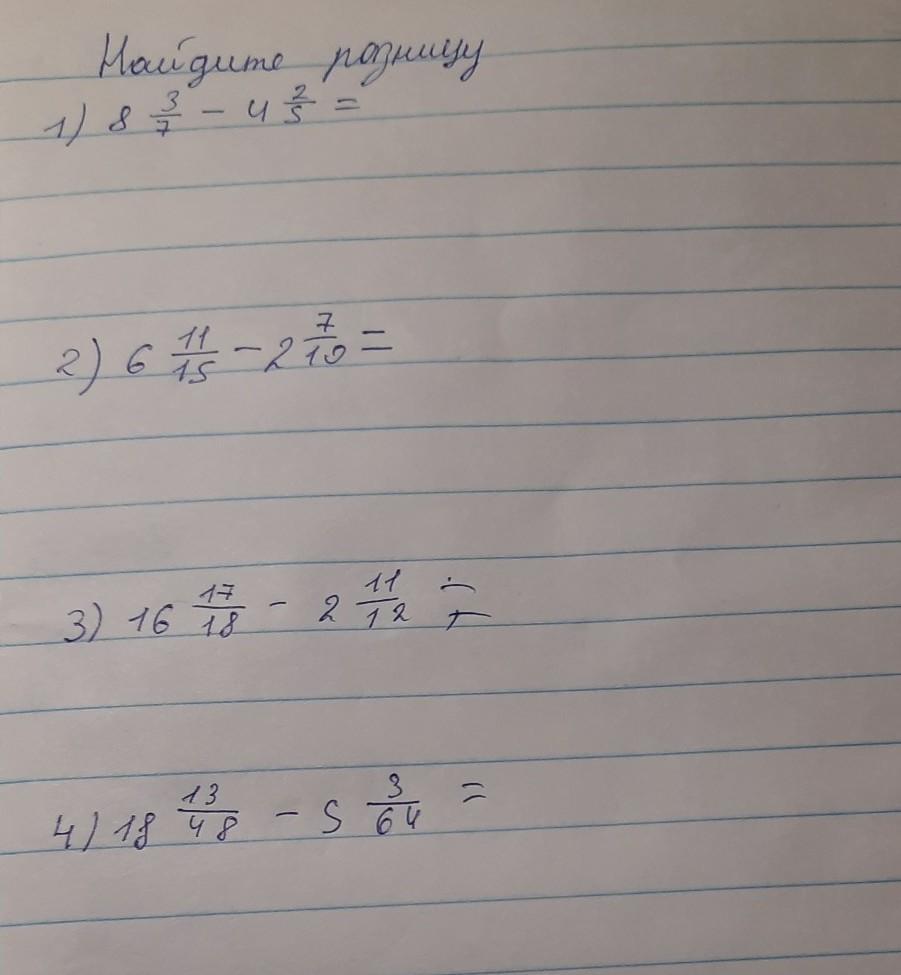 Найдите розницу
1) 8 3/7 - 4 2/5 =
2) 6 11/15 - 2 7/10 =
3) 16 17/18 - 2 11/12 =
4) 18 13/48 - 5 3/64 =